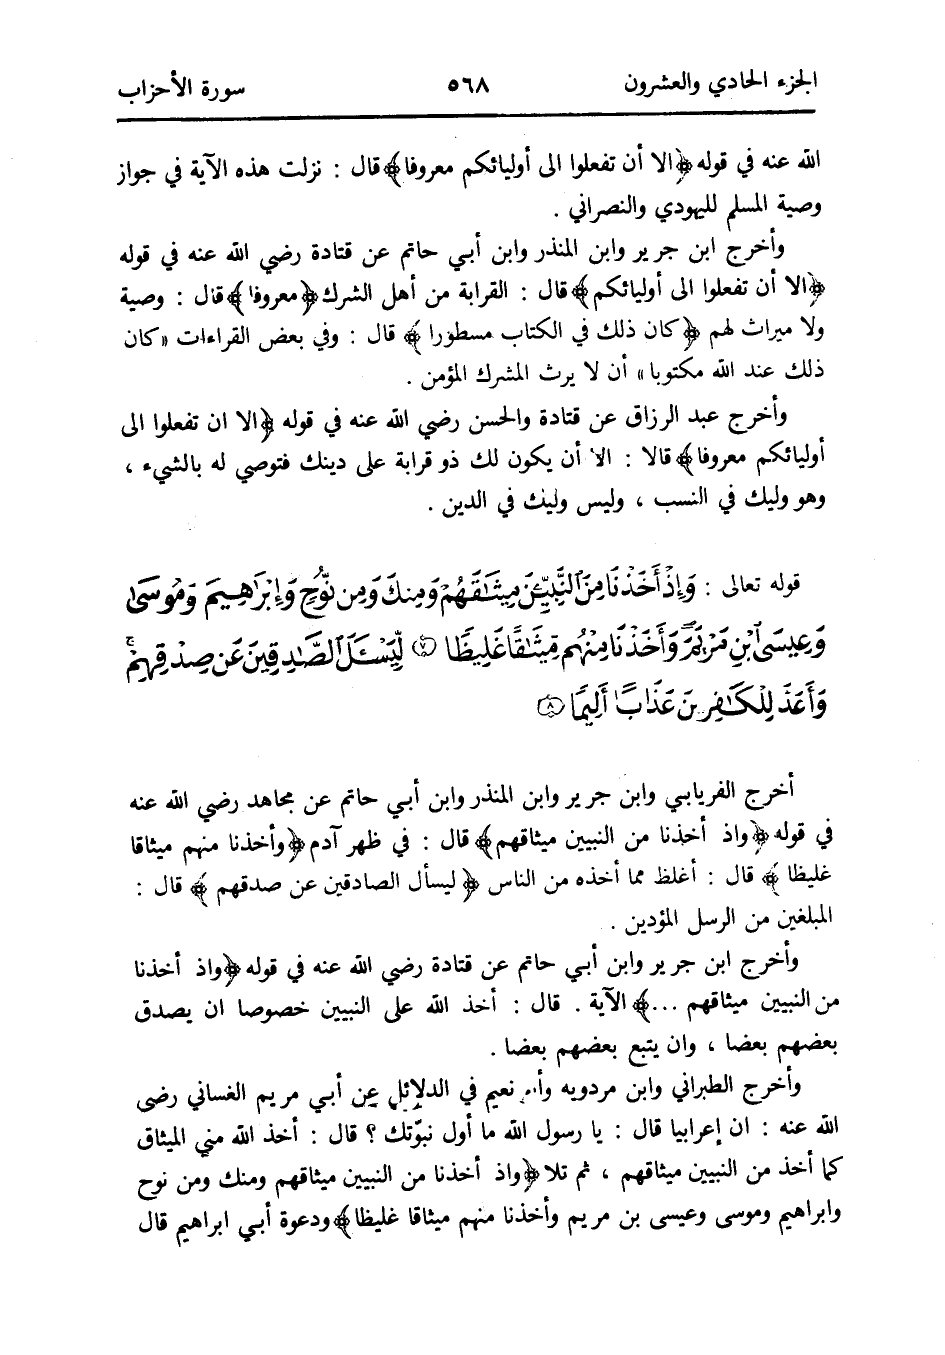 الجزء الحادي والعشرون ٥٦٨ سورة الأحزاب
الله عنه في قوله ﴿الا أن تفعلوا الى أوليائكم معروفا﴾ قال : نزلت هذه الآية في جواز
وصية المسلم لليهودي والنصراني .
وأخرج ابن جرير وابن المنذر وابن أبي حاتم عن قتادة رضي الله عنه في قوله
﴿الا أن تفعلوا الى أوليائكم﴾ قال : القرابة من أهل الشرك ﴿معروفا﴾ قال : وصية
ولا ميراث لهم ﴿كان ذلك في الكتاب مسطورا﴾ قال : وفي بعض القراءات «كان
ذلك عند الله مكتوبا» أن لا يرث المشرك المؤمن .
وأخرج عبد الرزاق عن قتادة والحسن رضي الله عنه في قوله ﴿الا ان تفعلوا الى
أوليائكم معروفا﴾ قالا : الا أن يكون لك ذو قرابة على دينك فتوصي له بالشيء ،
وهو وليك في النسب ، وليس وليك في الدين .
قوله تعالى : وَإِذْ أَخَذْنَا مِنَ ٱلنَّبِيِّـۧنَ مِيثَٰقَهُمْ وَمِنكَ وَمِن نُّوحٍ وَإِبْرَٰهِيمَ وَمُوسَىٰ
وَعِيسَى ٱبْنِ مَرْيَمَ ۖ وَأَخَذْنَا مِنْهُم مِّيثَٰقًا غَلِيظًا ٧ لِّيَسْـَٔلَ ٱلصَّٰدِقِينَ عَن صِدْقِهِمْ ۚ
وَأَعَدَّ لِلْكَٰفِرِينَ عَذَابًا أَلِيمًا ٨
أخرج الفريابي وابن جرير وابن المنذر وابن أبي حاتم عن مجاهد رضي الله عنه
في قوله ﴿واذ أخذنا من النبيين ميثاقهم﴾ قال : في ظهر آدم ﴿وأخذنا منهم ميثاقا
غليظا﴾ قال : أغلظ مما أخذه من الناس ﴿ليسأل الصادقين عن صدقهم﴾ قال :
المبلغين من الرسل المؤدين .
وأخرج ابن جرير وابن أبي حاتم عن قتادة رضي الله عنه في قوله ﴿واذ أخذنا
من النبيين ميثاقهم ...﴾ الآية . قال : أخذ الله على النبيين خصوصا ان يصدق
بعضهم بعضا ، وان يتبع بعضهم بعضا .
وأخرج الطبراني وابن مردويه وأبو نعيم في الدلائل عن أبي مريم الغساني رضي
الله عنه : ان إعرابيا قال : يا رسول الله ما أول نبوّتك ؟ قال : أخذ الله مني الميثاق
كما أخذ من النبيين ميثاقهم ، ثم تلا ﴿واذ أخذنا من النبيين ميثاقهم ومنك ومن نوح
وابراهيم وموسى وعيسى بن مريم وأخذنا منهم ميثاقا غليظا﴾ ودعوة أبي ابراهيم قال